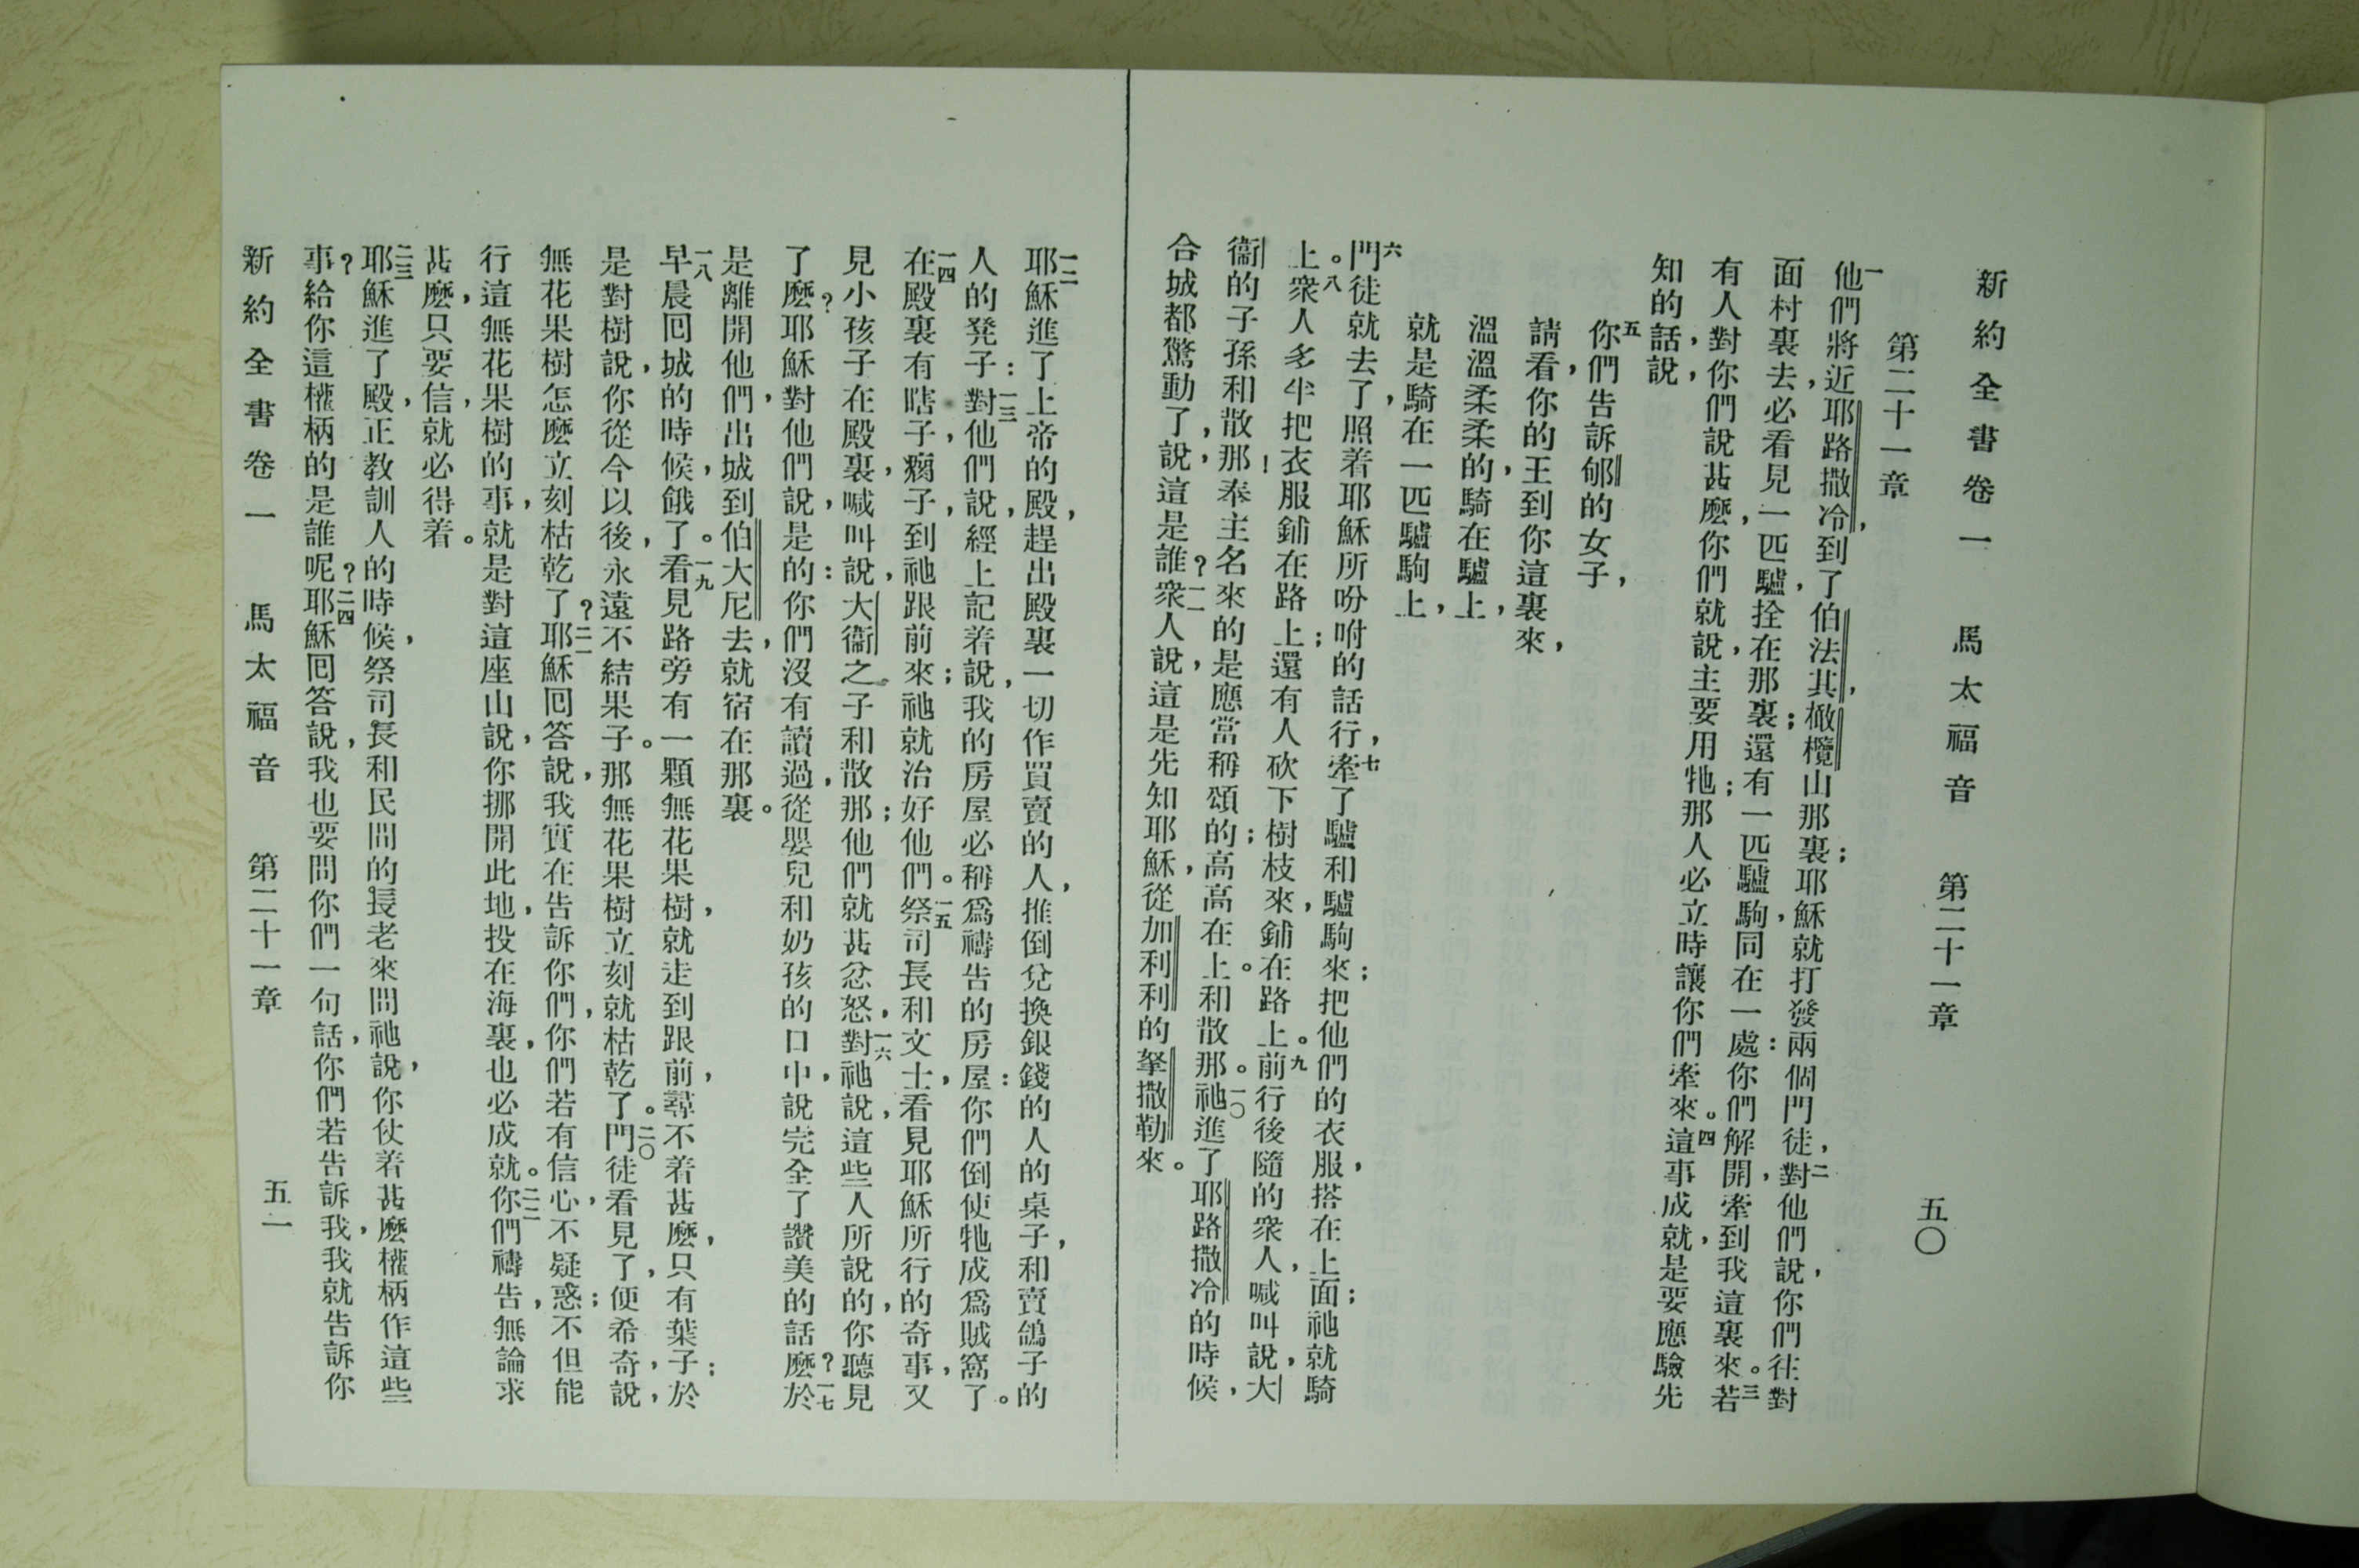 新約全書卷一　馬太福音　第二十一章　五〇
第二十一章
一他們將近耶路撒冷，到了伯法其，橄欖山那裏；耶穌就打發兩個門徒，二對他們說，你們往對
面村裏去，必看見一匹驢，拴在那裏；還有一匹驢駒，同在一處：你們解開，牽到我這裏來。三若
有人對你們說甚麼，你們就說，主要用牠；那人必立時讓你們牽來。四這事成就，是要應驗先
知的話，說，
五你們告訴郇的女子，
請看，你的王到你這裏來，
溫溫柔柔的，騎在驢上，
就是騎在一匹驢駒上，
六門徒就去了，照着耶穌所吩咐的話行，七牽了驢和驢駒來；把他們的衣服，搭在上面；祂就騎
上。八衆人多半把衣服鋪在路上；還有人砍下樹枝來，鋪在路上。九前行後隨的衆人，喊叫說，大
衞的子孫和散那！奉主名來的是應當稱頌的；高高在上。和散那。一〇祂進了耶路撒冷的時候，
合城都驚動了，說，這是誰？一一衆人說，這是先知耶穌，從加利利的拏撒勒來。
一二耶穌進了上帝的殿，趕出殿裏一切作買賣的人，推倒兌換銀錢的人的桌子，和賣鴿子的
人的凳子：一三對他們說，經上記着說，我的房屋必稱爲禱告的房屋：你們倒使牠成爲賊窩了。
一四在殿裏有瞎子，瘸子，到祂跟前來；祂就治好他們。一五祭司長和文士，看見耶穌所行的奇事，又
見小孩子在殿裏，喊叫說，大衞之子和散那；他們就甚忿怒，一六對祂說，這些人所說的，你聽見
了麼？耶穌對他們說，是的：你們沒有讀過，從嬰兒和奶孩的口中，說完全了讚美的話麼？一七於
是離開他們，出城到伯大尼去，就宿在那裏。
一八早晨囘城的時候，餓了。一九看見路旁有一顆無花果樹，就走到跟前，尋不着甚麼，只有葉子；於
是對樹說，你從今以後，永遠不結果子。那無花果樹立刻就枯乾了。二〇門徒看見了，便希奇，說，
無花果樹怎麼立刻枯乾了？二一耶穌囘答說，我實在告訴你們，你們若有信心，不疑惑；不但能
行這無花果樹的事，就是對這座山說，你挪開此地，投在海裏，也必成就。二二你們禱告，無論求
甚麼，只要信，就必得着。
二三耶穌進了殿，正教訓人的時候，祭司長和民間的長老來問祂說，你仗着甚麼權柄作這些
事？給你這權柄的是誰呢？二四耶穌囘答說，我也要問你們一句話，你們若告訴我，我就告訴你
新約全書卷一　馬太福音　第二十一章　五一